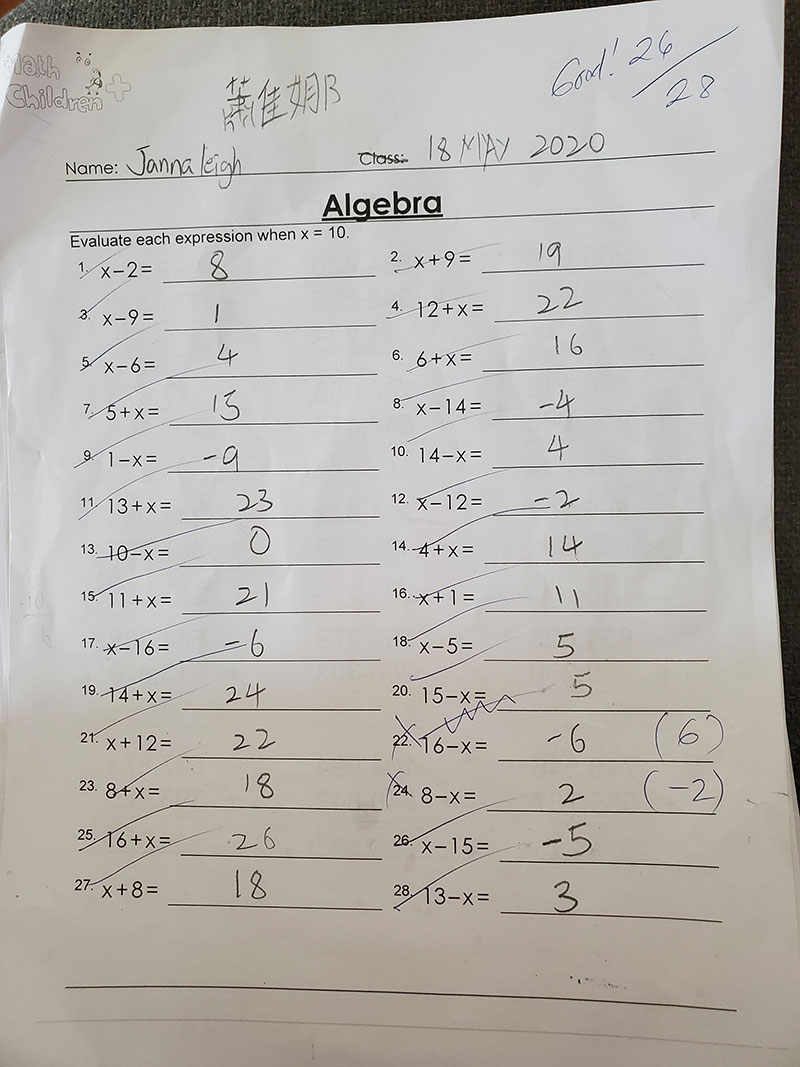 Math
Children+
Good! 26/28
蕭佳
Name: Janna leigh Class: 18 MAY 2020
Algebra
Evaluate each expression when x = 10.
1. x−2= 8 2. x+9= 19
3. x−9= 1 4. 12+x= 22
5. x−6= 4 6. 6+x= 16
7. 5+x= 15 8. x−14= −4
9. 1−x= −9 10. 14−x= 4
11. 13+x= 23 12. x−12= −2
13. 10−x= 0 14. 4+x= 14
15. 11+x= 21 16. x+1= 11
17. x−16= −6 18. x−5= 5
19. 14+x= 24 20. 15−x= 5
21. x+12= 22 22. 16−x= −6 (6)
23. 8+x= 18 24. 8−x= 2 (−2)
25. 16+x= 26 26. x−15= −5
27. x+8= 18 28. 13−x= 3